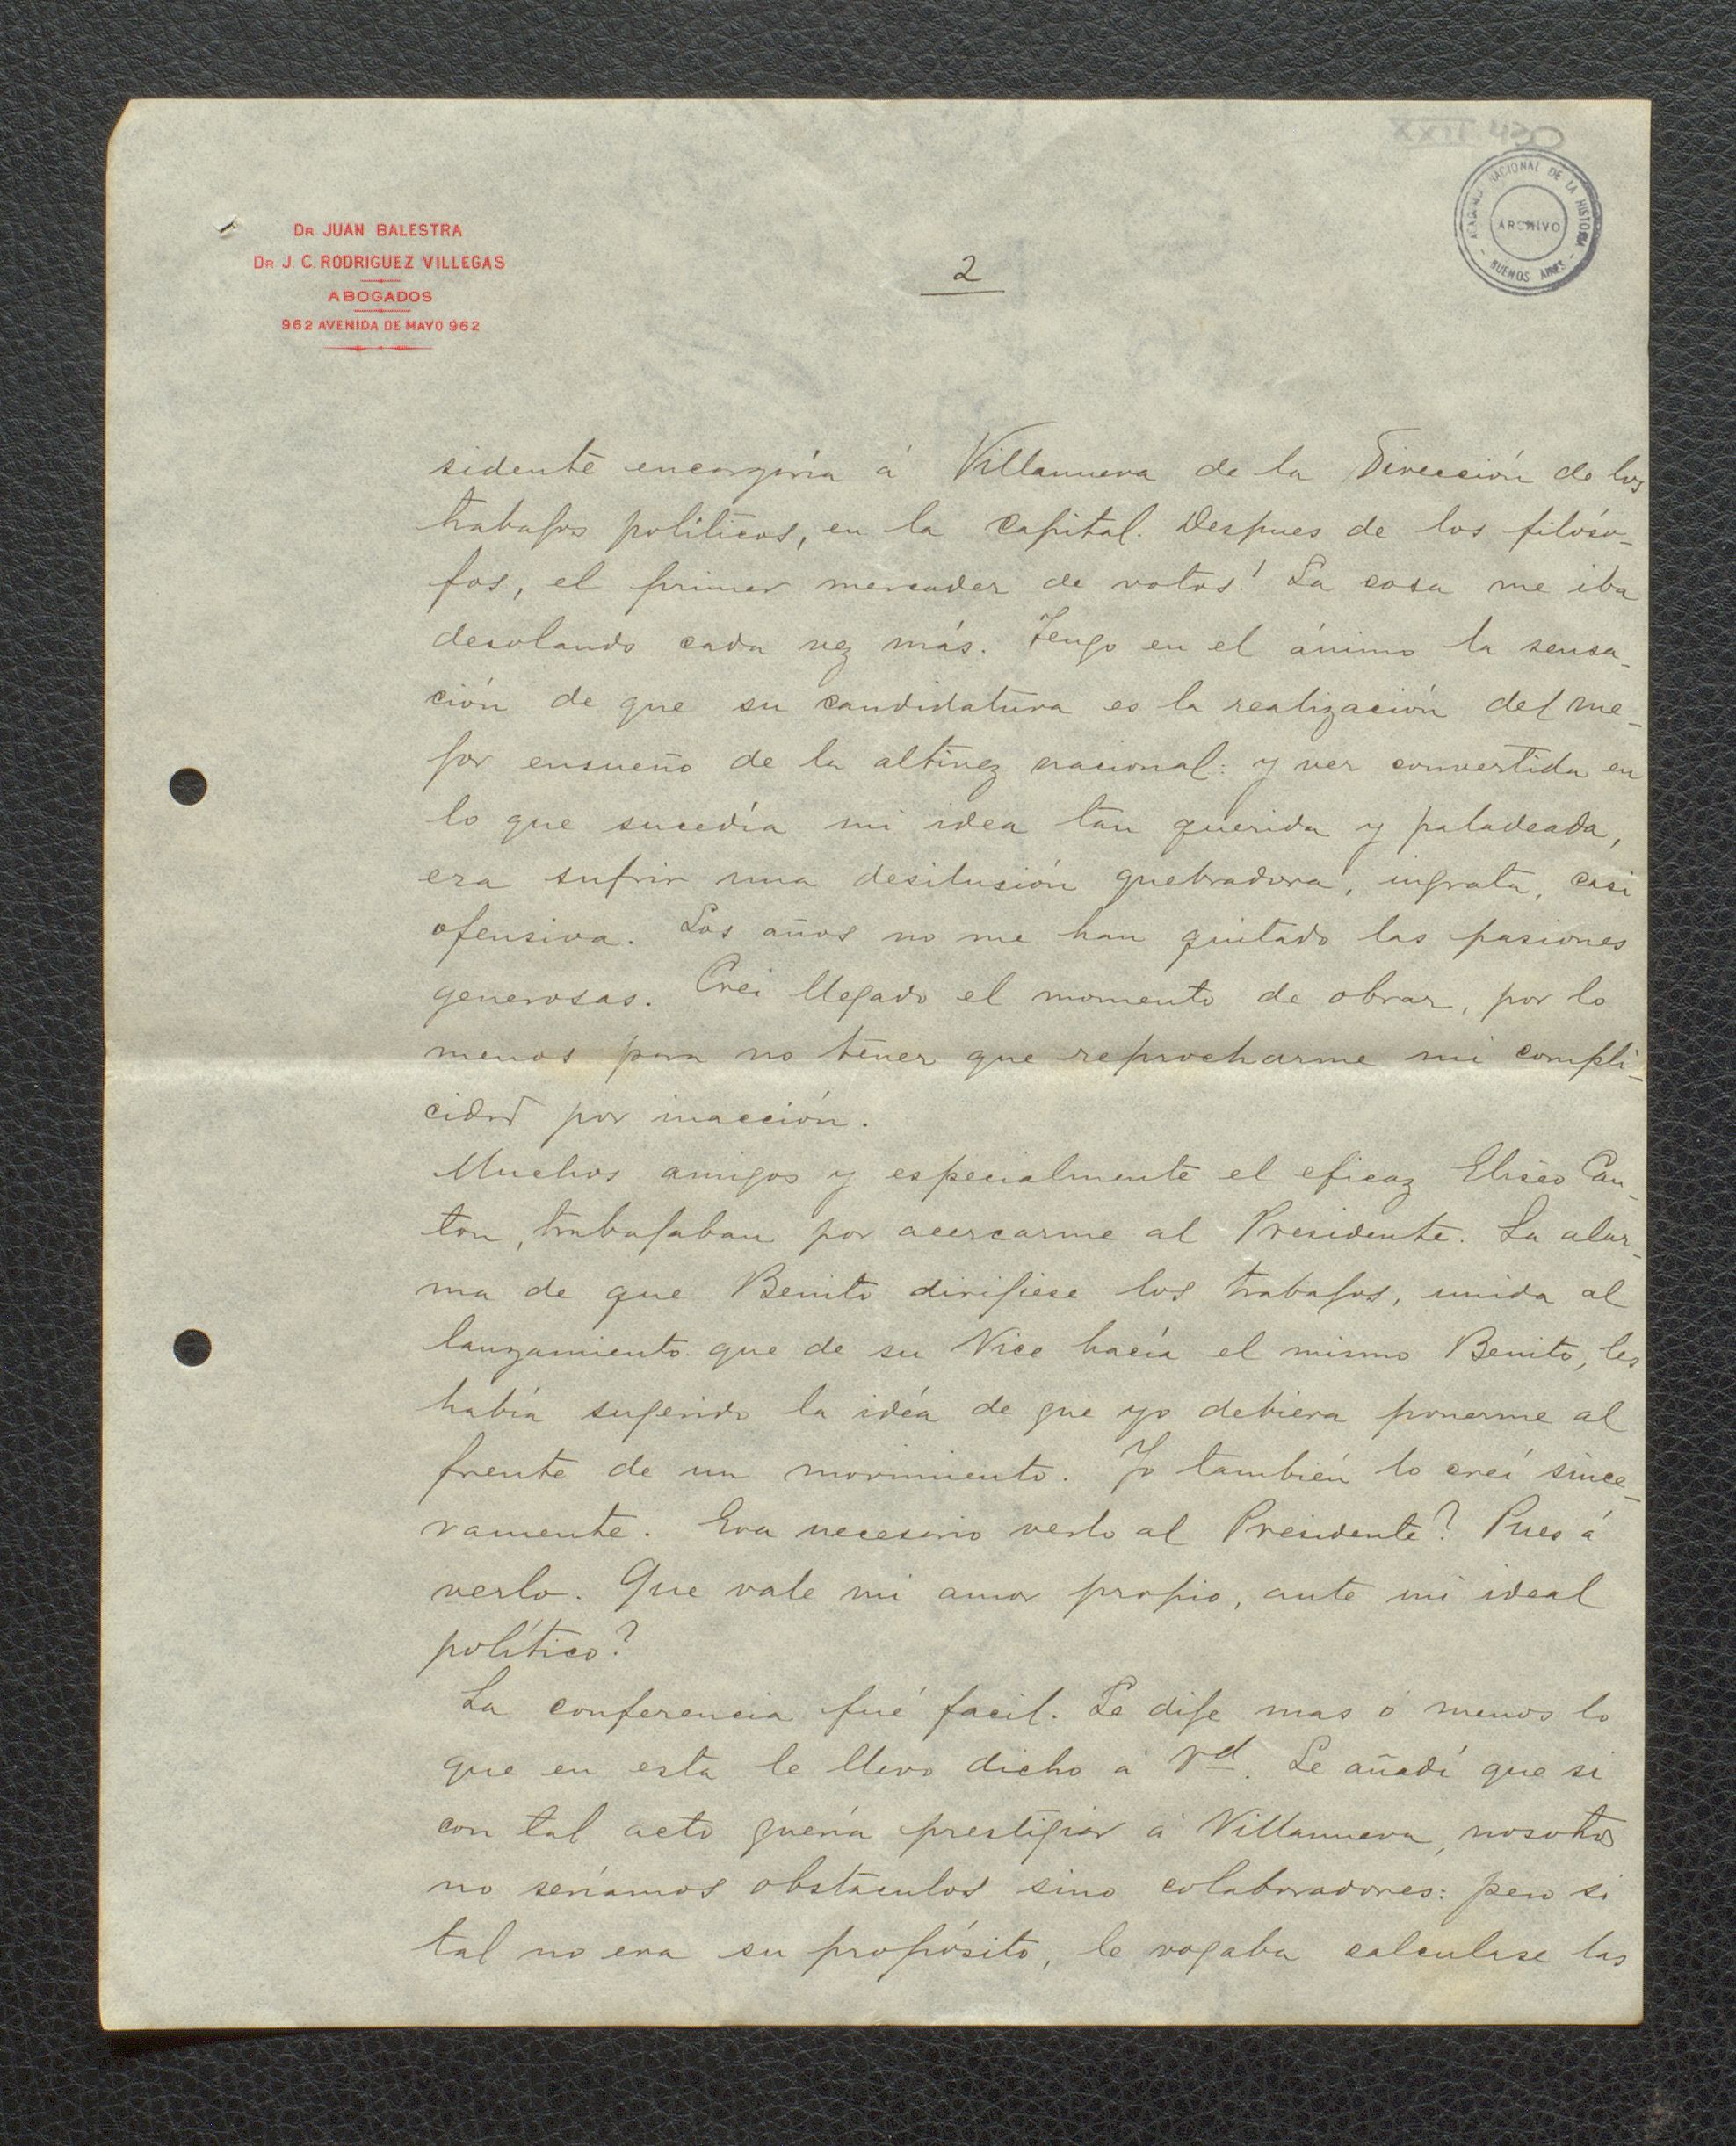 DR JUAN BALESTRA
DR J. C. RODRIGUEZ VILLEGAS
ABOGADOS
962 AVENIDA DE MAYO 962
2
ACADEMIA NACIONAL DE LA HISTORIA
ARCHIVO
BUENOS AIRES
sidente encargaría á Villanueva de la Dirección de los
trabajos políticos, en la capital. Despues de los filóso-
fos, el primer mercader de votos! La cosa me iba
desolando cada vez más. Tengo en el ánimo la sensa-
ción de que su candidatura es la realización del me-
jor ensueño de la altivez nacional: y ver convertida en
lo que sucedía mi idea tan querida y paladeada,
era sufrir una desilusión quebradora, ingrata, casi
ofensiva. Los años no me han quitado las pasiones
generosas. Crei llegado el momento de obrar, por lo
menos para no tener que reprocharme mi compli-
cidad por inacción.
Muchos amigos y especialmente el eficaz Eliseo Can-
ton, trabajaban por acercarme al Presidente. La alar-
ma de que Benito dirijiese los trabajos, unida al
lanzamiento que de su Vice hacía el mismo Benito, les
había sugerido la idéa de que yo debiera ponerme al
frente de un movimiento. Yo también lo creí since-
ramente. Era necesario verlo al Presidente? Pues á
verlo. Que vale mi amor propio, ante mi ideal
político?
La conferencia fué facil. Le dije mas ó menos lo
que en esta le llevo dicho á Vd. Le añadí que si
con tal acto quería prestigiar á Villanueva, nosotros
no seríamos obstáculos sino colaboradores: pero si
tal no era su propósito, le rogaba calculase las